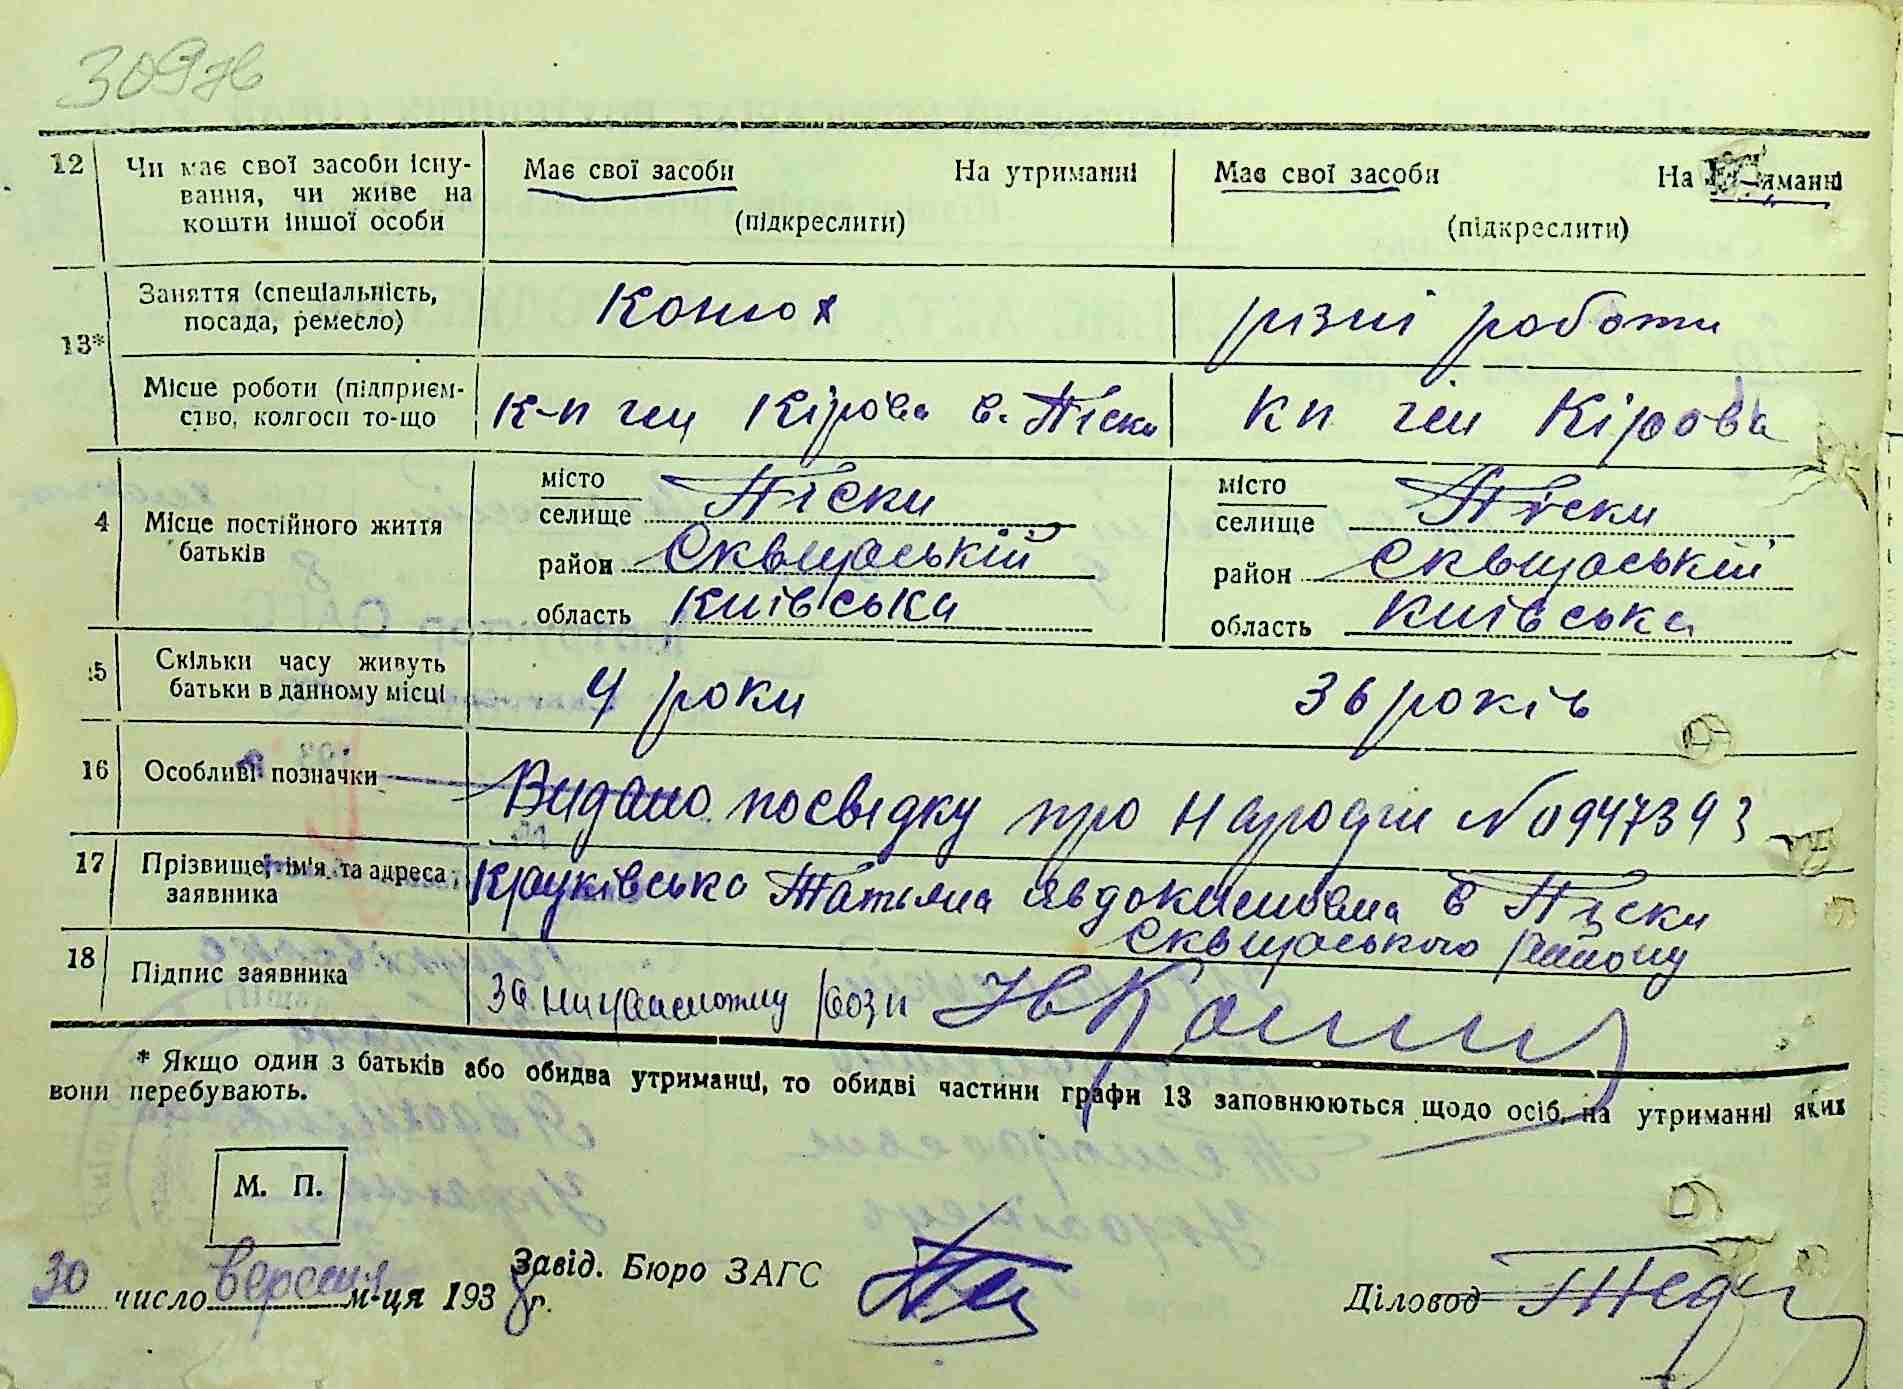 12 Чи має свої засоби існу-
вання, чи живе на
кошти іншої особи
Має свої засоби На утриманні
(підкреслити)
Має свої засоби На утриманні
(підкреслити)
13* Заняття (спеціальність,
посада, ремесло)
Конюх
різні роботи
Місце роботи (підприєм-
ство, колгосп то-що
К-п ім Кірова с. Піски
Кп ім Кірова
4 Місце постійного життя
батьків
місто
селище Піски
район Сквирський
область Київська
місто
селище Піски
район Сквирський
область Київська
15 Скільки часу живуть
батьки в данному місці
4 роки
36 років
16 Особливі позначки
Видано посвідку про народж №0947393
17 Прізвище, ім'я та адреса
заявника
Татьяна Явдокимовна с Піски
Сквирського району
18 Підпис заявника
За неграмотну розп
* Якщо один з батьків або обидва утриманці, то обидві частини графи 13 заповнюються щодо осіб, на утриманні яких
вони перебувають.
М. П.
30 число вересня м-ця 1938 г.
Завід. Бюро ЗАГС
Діловод